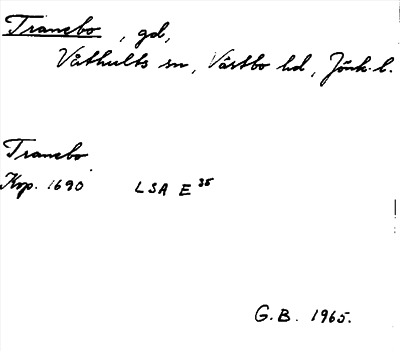 Tranebo, gd,
Våthults sn, Västbo hd, Jönk. l.
Tranebo
Kop. 1690 LSA E 35
G.B. 1965.